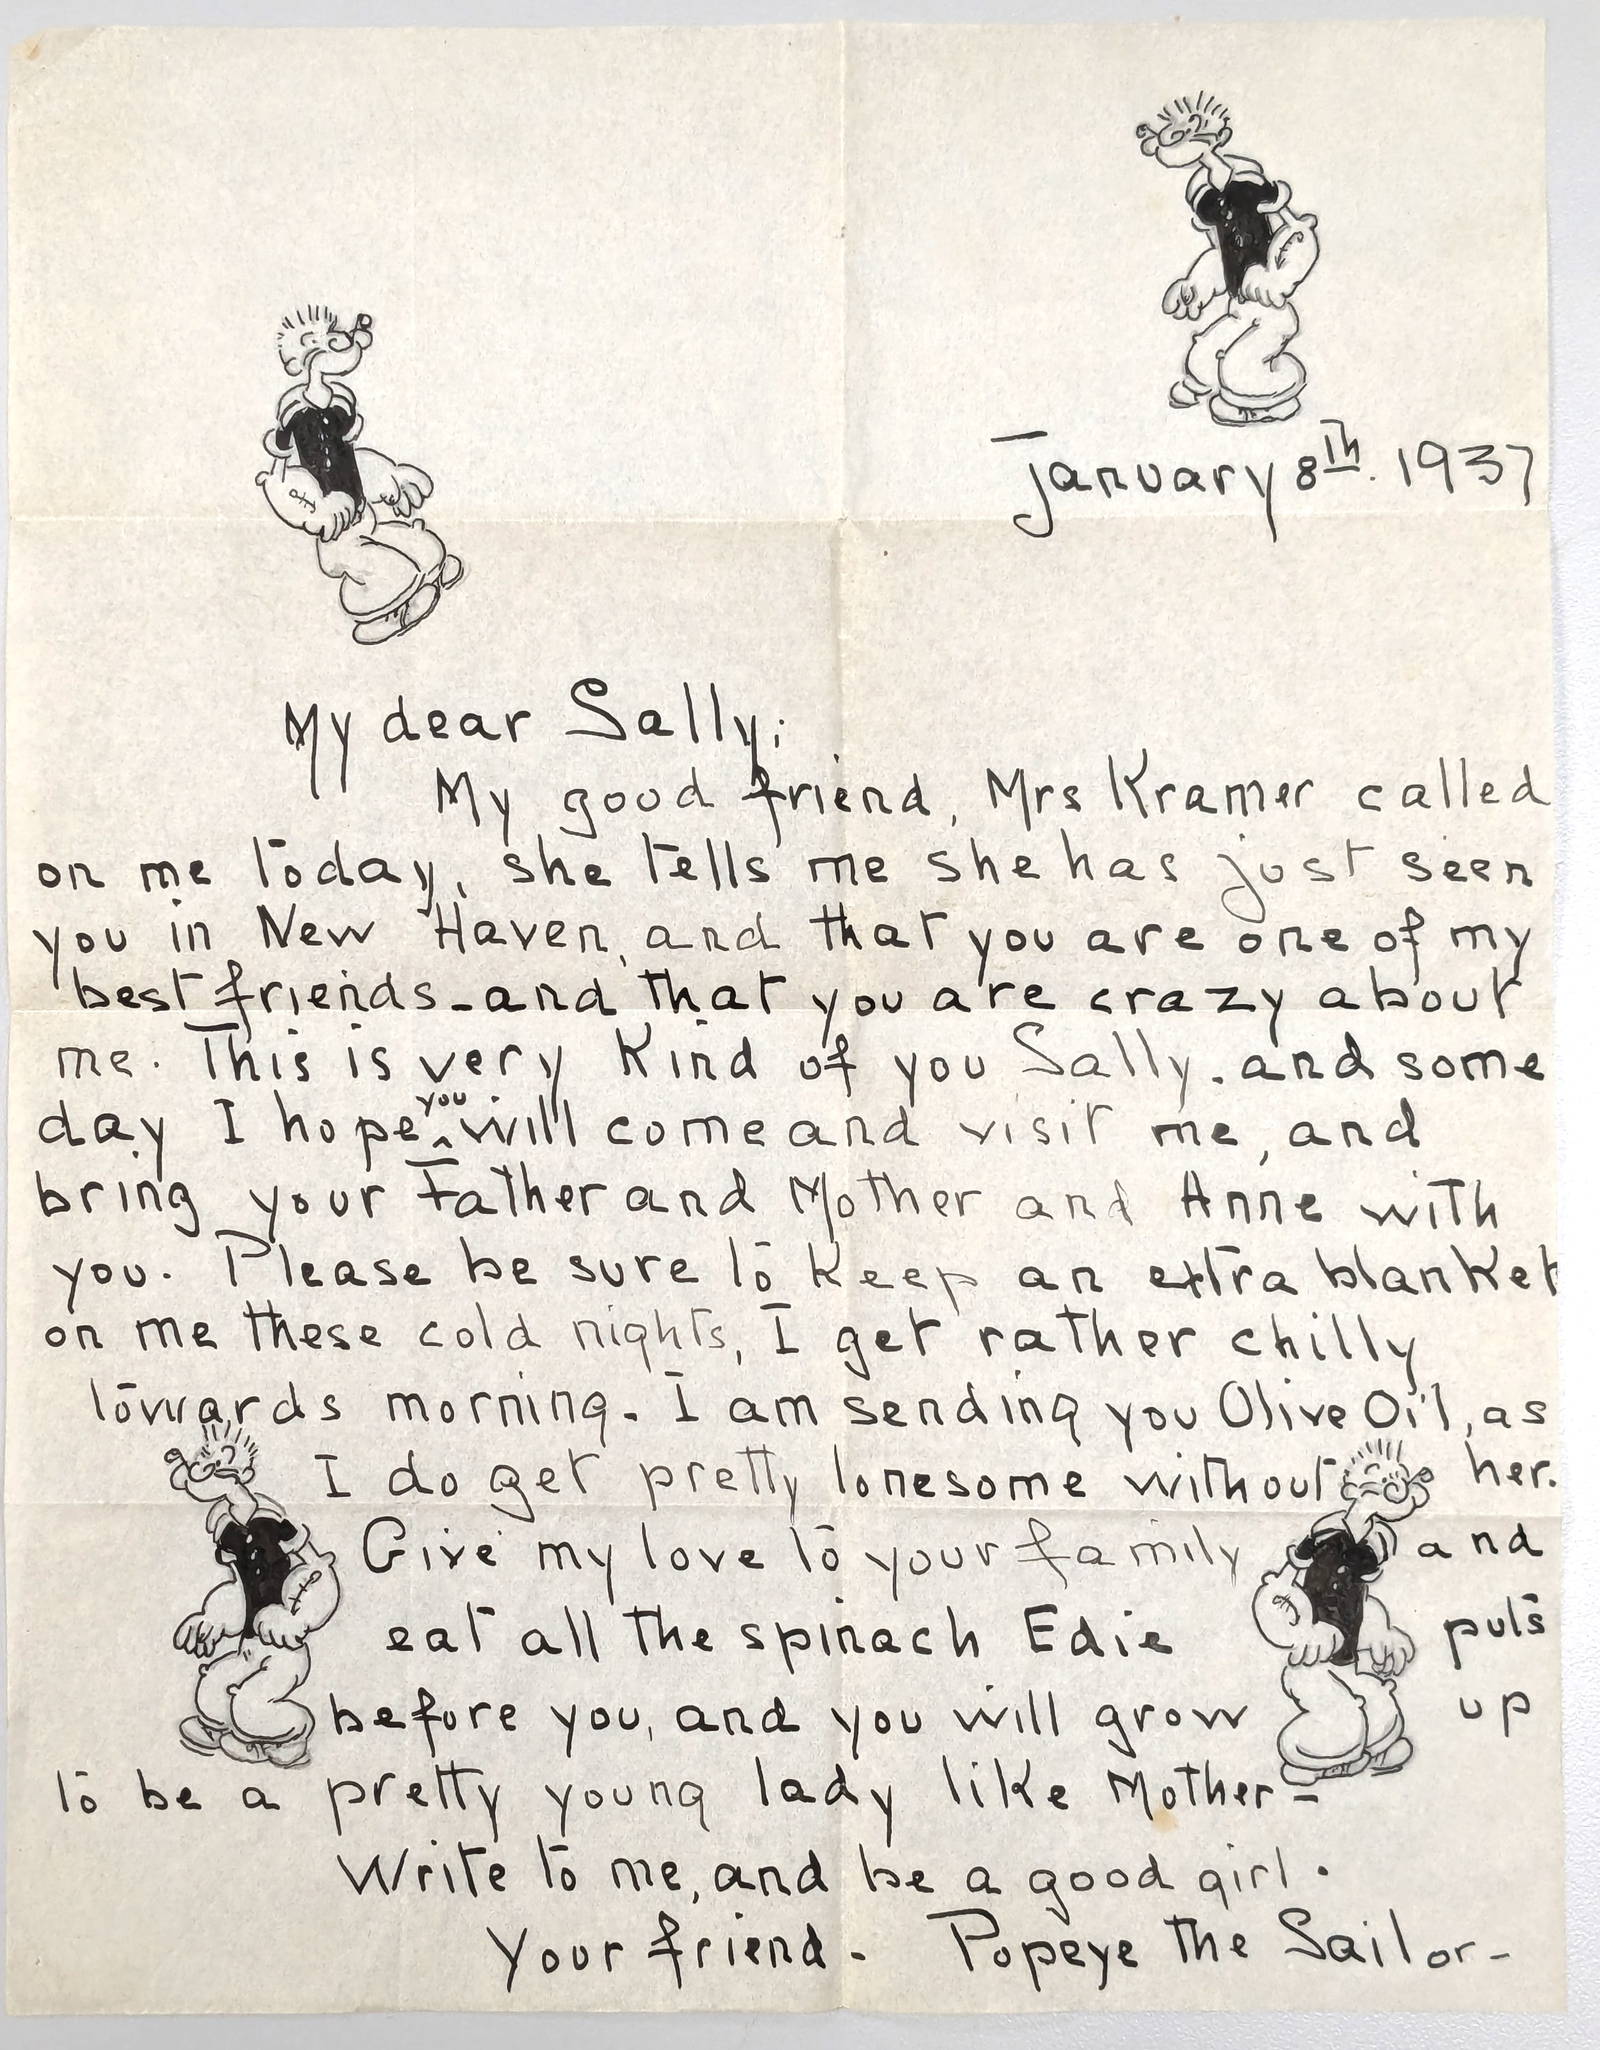 January 8th. 1937
My dear Sally;
My good friend, Mrs Kramer called
on me today, she tells me she has just seen
you in New Haven, and that you are one of my
best friends - and that you are crazy about
me. This is very Kind of you Sally. and some
day I hope you will come and visit me, and
bring your Father and Mother and Anne with
you. Please be sure to Keep an extra blanket
on me these cold nights, I get rather chilly
towards morning. I am sending you Olive Oil, as
I do get pretty lonesome without her.
Give my love to your family and
eat all the spinach Edie puts
before you, and you will grow up
to be a pretty young lady like Mother -
Write to me, and be a good girl.
Your friend - Popeye the Sailor -